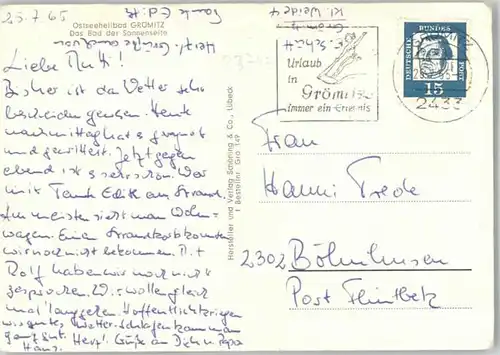 25.7.65
Tante Edith
Ostseeheilbad GRÖMITZ
Das Bad der Sonnenseite
Herzl. Grüße auch von
Liebe Mutti!
Bisher ist das Wetter sehr
bescheiden gewesen. Heute
nachmittag hat es geregnet
und gewittert. Jetzt gegen
abend ist es sehr schön. War
mit Tante Edith am Strand.
Am meisten sieht man Wohn-
wagen. Einen Strandkorb konnten
wir noch nicht bekommen. Mit
Rolf haben wir noch nicht
gesprochen. Wir wollen gleich
mal langgehen. Hoffentlich kriegen
wir gutes Wetter. Schlafen kann man
ganz gut. Herzl. Grüße an Dich u. Papa
Hans.
Hersteller und Verlag Schöning & Co., Lübeck
Bestellnr. Grö 149
Kl. Weide
Grömitz
Urlaub
in
Grömitz
immer ein Erlebnis
DEUTSCHE BUNDESPOST
15
2433
Frau
Hanni Trede
2302 Böhnhusen
Post Flintbek